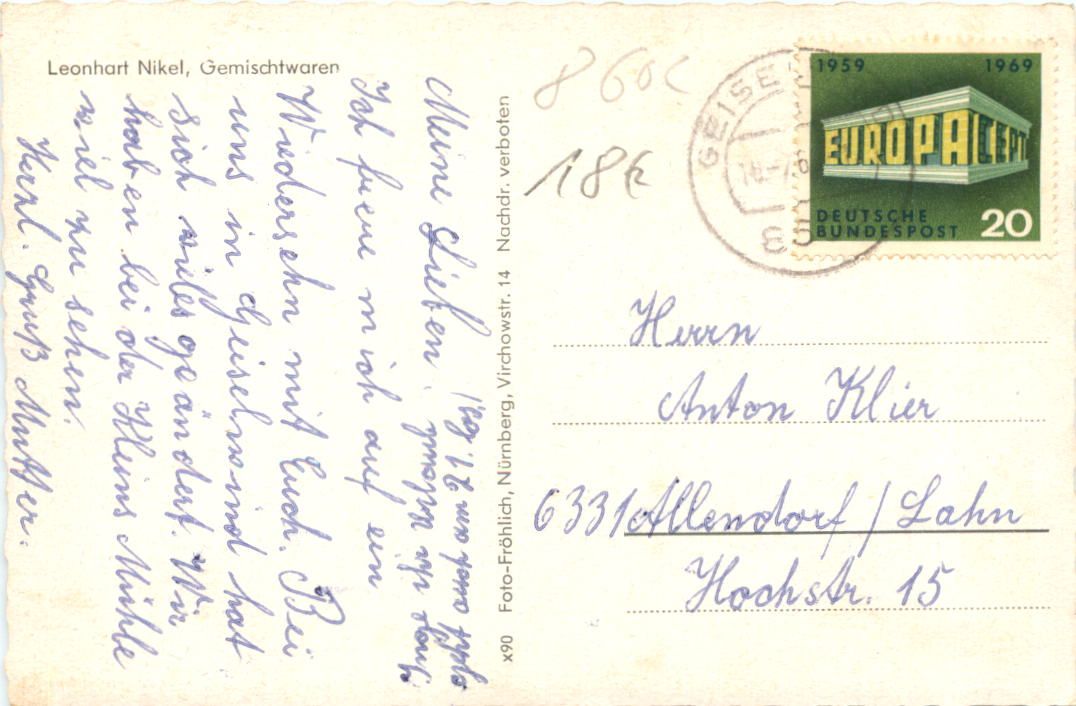 Leonhart Nikel, Gemischtwaren
Meine Lieben!
Ich freue mich auf ein
Wiedersehn mit Euch. Bei
uns in Geiselwind hat
sich vieles geändert. Wir
haben bei der Kleins Mühle
viel zu sehen.
Herzl. Gruß Mutter.
x90 Foto-Fröhlich, Nürnberg, Virchowstr. 14 Nachdr. verboten
860c
18€
GEISE
1959 1969
EUROPA CEPT
DEUTSCHE
BUNDESPOST 20
Herrn
Anton Klier
6331 Allendorf / Lahn
Hochstr. 15